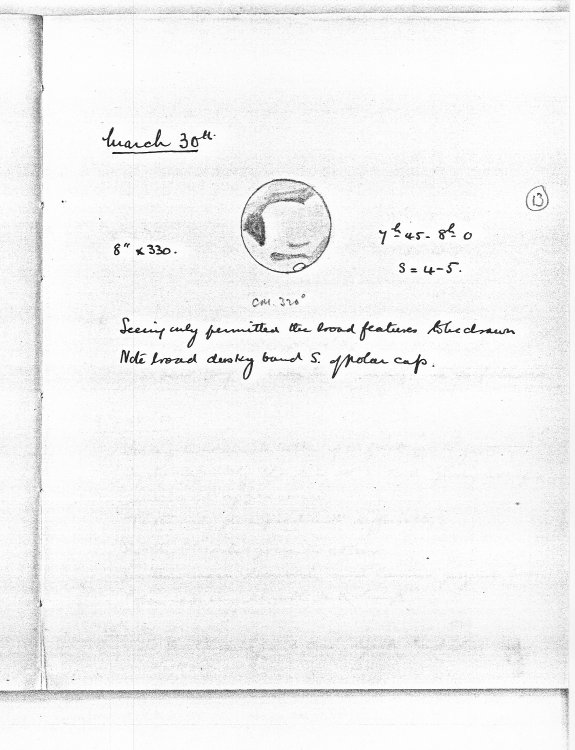 March 30th.
13
8" x 330.
7h 45 - 8h 0
S = 4-5.
CM. 320°
Seeing only permitted the broad features to be drawn
Note broad dusky band S. of polar cap.